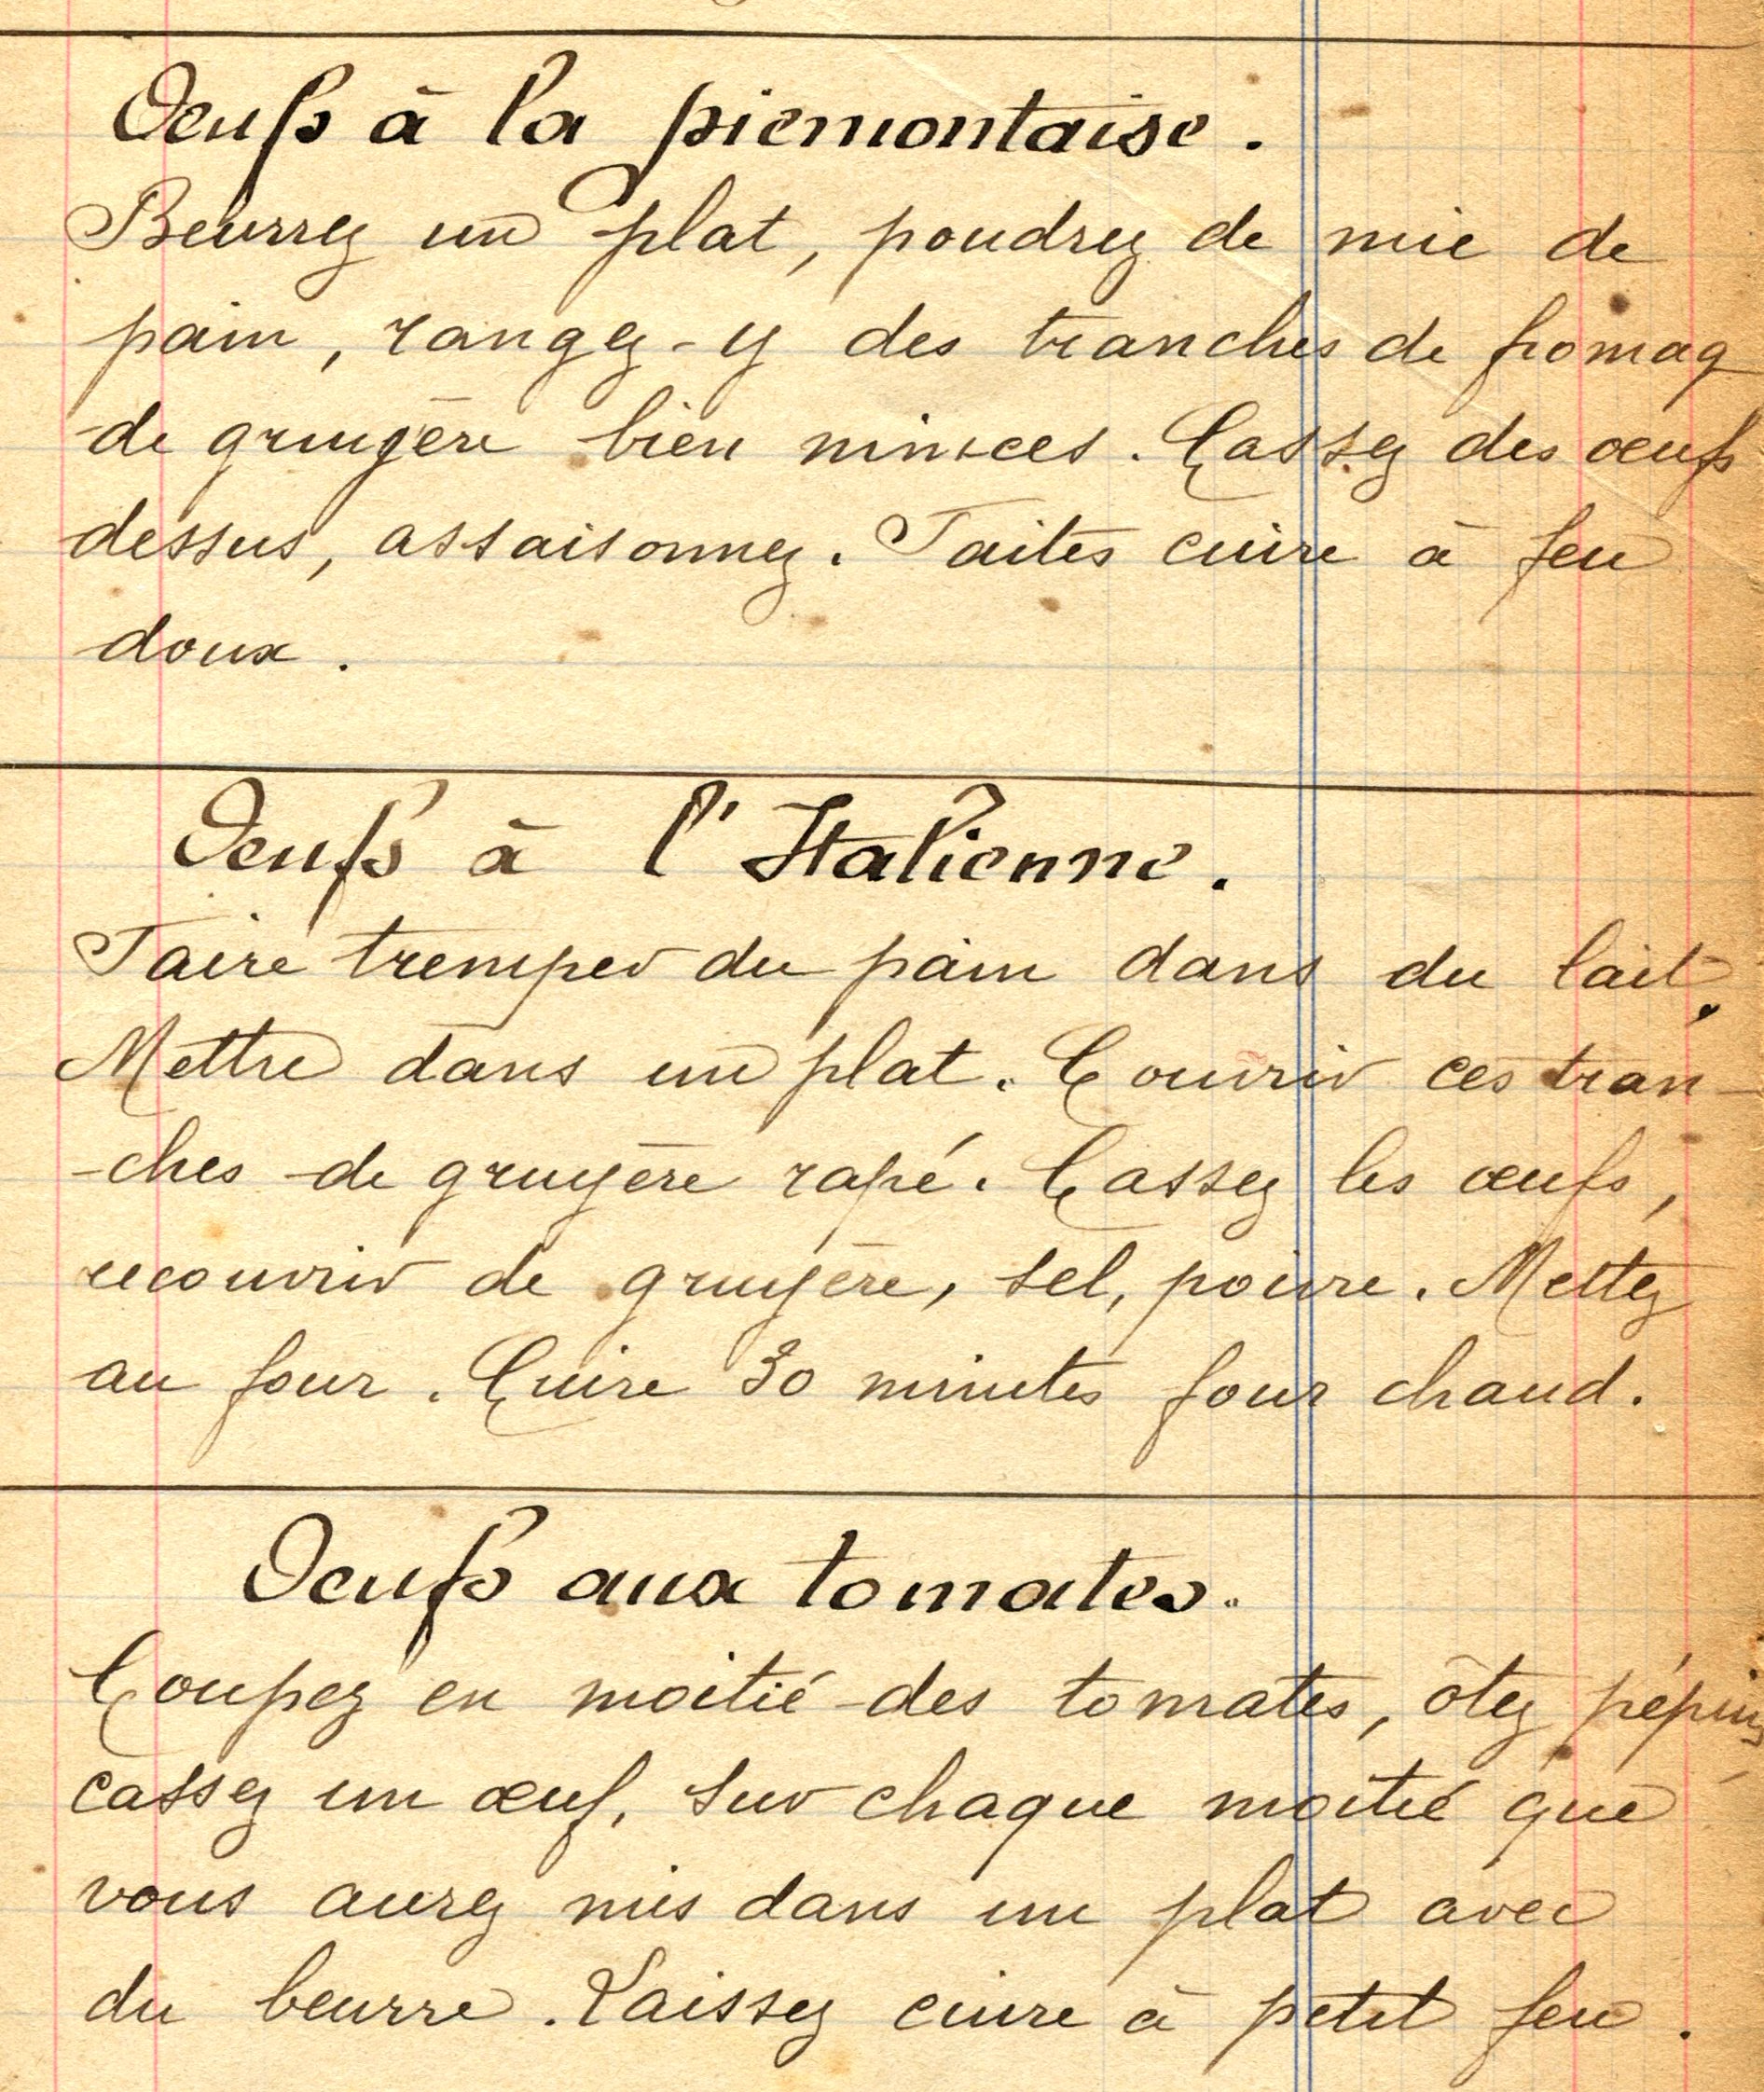 Oeufs à la piemontaise.
Beurrez un plat, poudrez de mie de
pain, rangez-y des tranches de fromag
de gruyère bien minces. Cassez des œufs
dessus, assaisonnez. Faites cuire à feu
doux.
Oeufs à l'Italienne.
Faire tremper du pain dans du lait.
Mettre dans un plat. Couvrir ces tran-
-ches de gruyère rapé. Cassez les œufs,
recouvrir de gruyère, sel, poivre. Mettez
au four. Cuire 30 minutes four chaud.
Oeufs aux tomates.
Coupez en moitié des tomates, ôtez pépins,
cassez un œuf, sur chaque moitié que
vous aurez mis dans un plat avec
du beurre. Laissez cuire à petit feu.